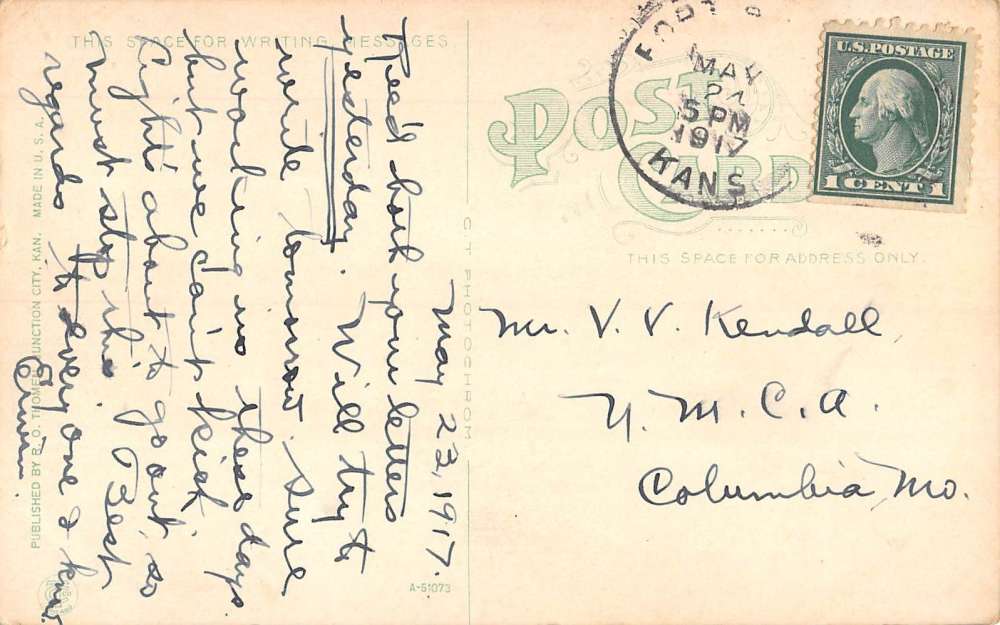 THIS SPACE FOR WRITING MESSAGES
POST
CARD
THIS SPACE FOR ADDRESS ONLY.
MAY
24
5 PM
1917
KANS
U.S. POSTAGE
1 CENT 1
May 23, 1917.
Rec'd both your letters
yesterday. Will try to
write tomorrow. Sure
working us these days
but we can't kick.
Eight about to go out, so
must stop this. Best
regards to every one I know.
Erwin.
Mr. V. V. Kendall,
Y. M. C. A.
Columbia, Mo.
PUBLISHED BY R. O. THOMEN, JUNCTION CITY, KAN. MADE IN U.S.A.
C T PHOTOCHROM
A-51073